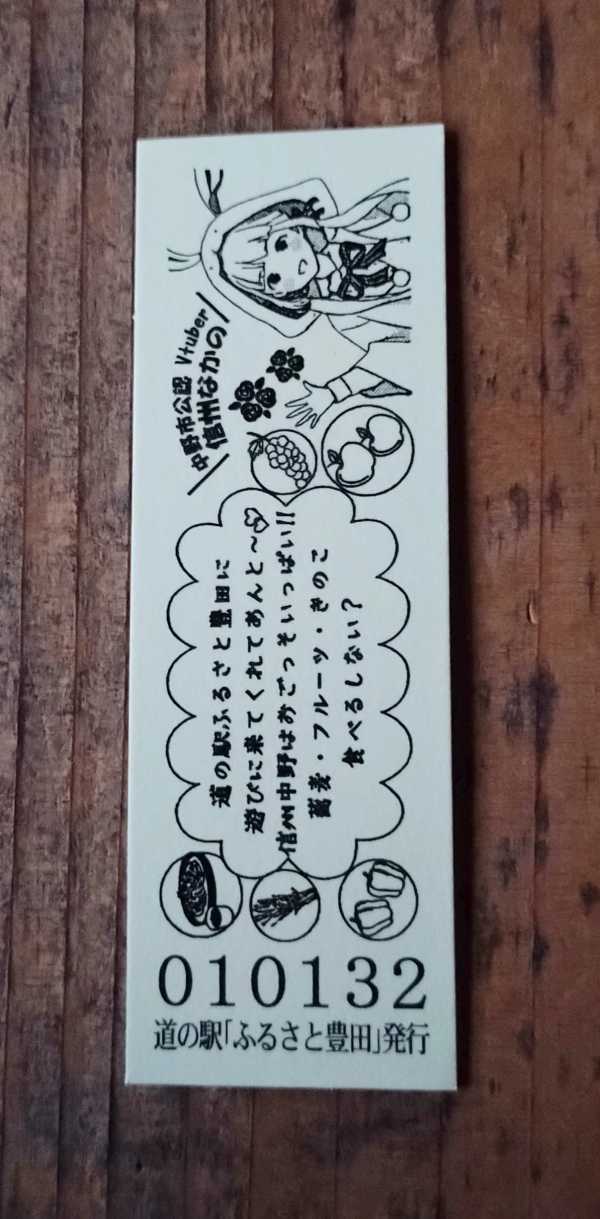 中野市公認 Vtuber
信州なかの
道の駅ふるさと豊田に
遊びに来てくれてあんと～♡
信州中野はおごっそいっぱい!!
蕎麦・フルーツ・きのこ
食べるしない?
010132
道の駅「ふるさと豊田」発行